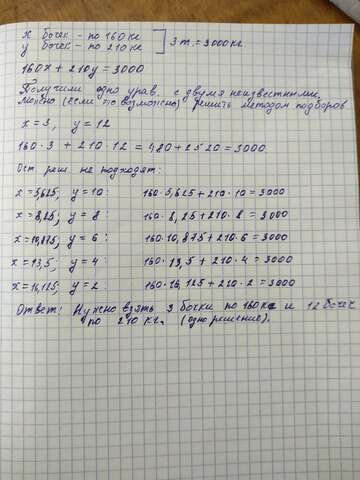 x бочек - по 160 кг
y бочек - по 210 кг ] 3 т. = 3000 кг
160x + 210y = 3000
Получили одно урав. с двумя неизвестными.
можно (если это возможно) решить методом подборов
x = 3, y = 12
160 · 3 + 210 · 12 = 480 + 2520 = 3000
Ост реш. не подходят:
x = 5,625; y = 10: 160 · 5,625 + 210 · 10 = 3000
x = 8,25; y = 8: 160 · 8,25 + 210 · 8 = 3000
x = 10,875; y = 6: 160 · 10,875 + 210 · 6 = 3000
x = 13,5; y = 4: 160 · 13,5 + 210 · 4 = 3000
x = 16,125; y = 2: 160 · 16,125 + 210 · 2 = 3000
Ответ: Нужно взять 3 бочки по 160 кг и 12 бочек
по 210 кг. (одно решение).